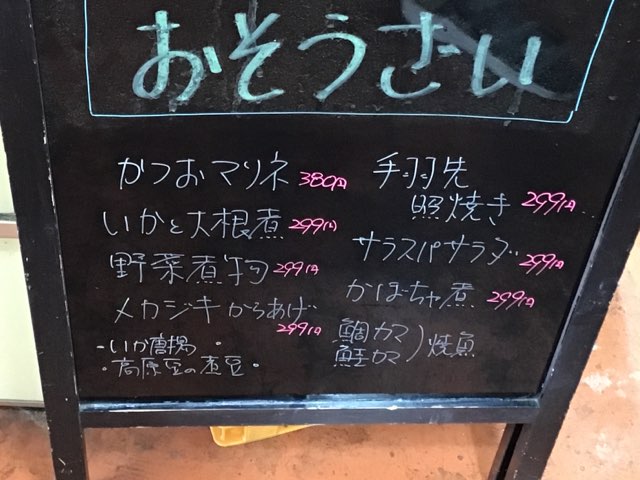 おそうざい
かつおマリネ 380円
いかと大根煮 299円
野菜煮物 299円
メカジキからあげ
299円
・いか唐揚・
・高原豆の煮豆・
手羽先
照焼き 299円
サラスパサラダ 299円
かぼちゃ煮 299円
鯛カマ
鮭カマ）焼魚